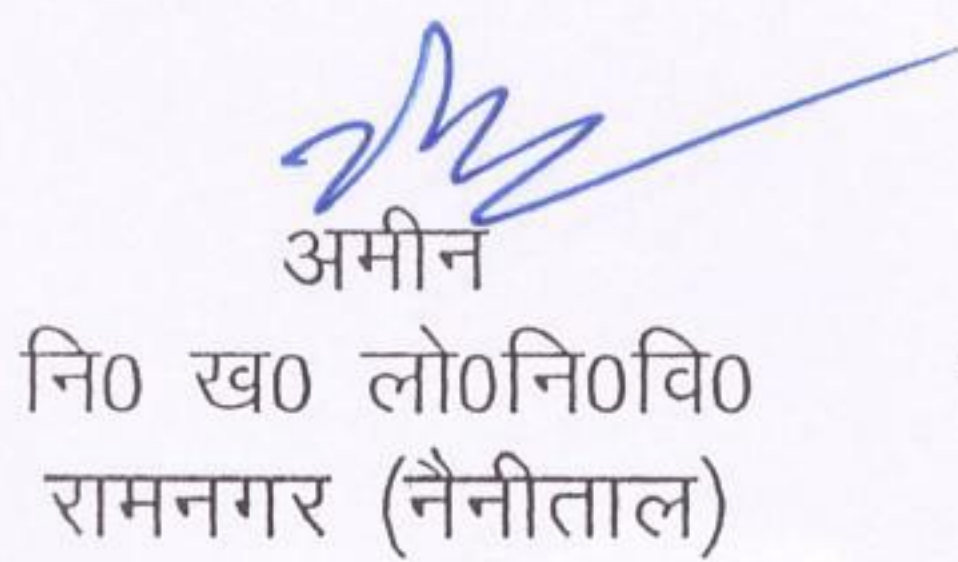 अमीन
नि0 ख0 लो0नि0वि0
रामनगर (नैनीताल)